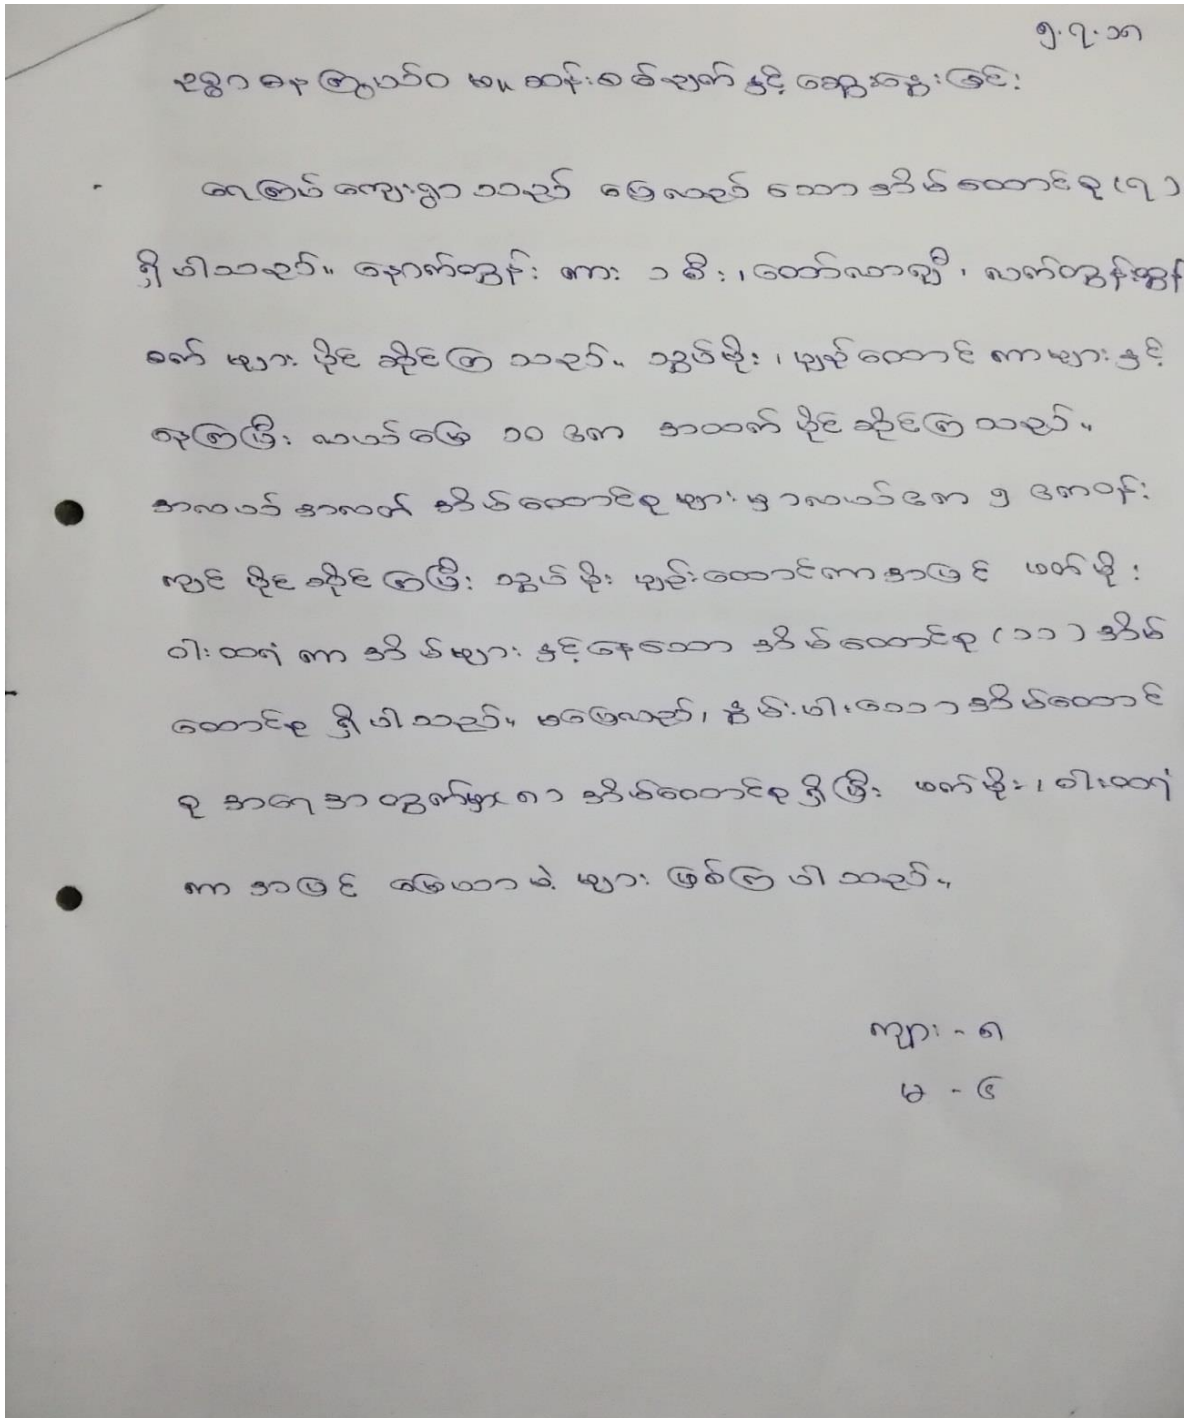 ၅.၇.၁၈
ဥစ္စာဓနကြွယ်ဝမှု ဆန်းစစ်ချက်နှင့် ဆွေးနွေးခြင်း
ရေကြမ် ကျေးရွာသည် ပြေလည်သောအိမ်ထောင်စု (၇)
ရှိပါသည်။ နောက်တွန်း ကား ၁ စီး၊ ထော်လာဂျီ၊ လက်တွန်းထွန်
စက်များ ပိုင်ဆိုင်ကြသည်။ သွပ်မိုး၊ ပျဉ်ထောင်ကာများနှင့်
နေကြပြီး လယ်မြေ ၁၀ ဧက အထက် ပိုင်ဆိုင်ကြသည်။
အလယ်အလတ် အိမ်ထောင်စုများမှာ လယ်ဧက ၅ ဧကဝန်း
ကျင် ပိုင်ဆိုင်ကြပြီး သွပ်မိုး ပျဉ်းထောင်ကာအပြင် ဖက်မိုး
ဝါးထရံကာ အိမ်များနှင့်နေသော အိမ်ထောင်စု (၁၁) အိမ်
ထောင်စု ရှိပါသည်။ မပြေလည်၊ နွမ်းပါးသော အိမ်ထောင်
စု အရေအတွက်မှာ ၈၁ အိမ်ထောင်စုရှိပြီး ဖက်မိုး၊ ဝါးထရံ
ကာအပြင် မြေယာမဲ့များ ဖြစ်ကြပါသည်။
ကျား - ၈
မ - ၆